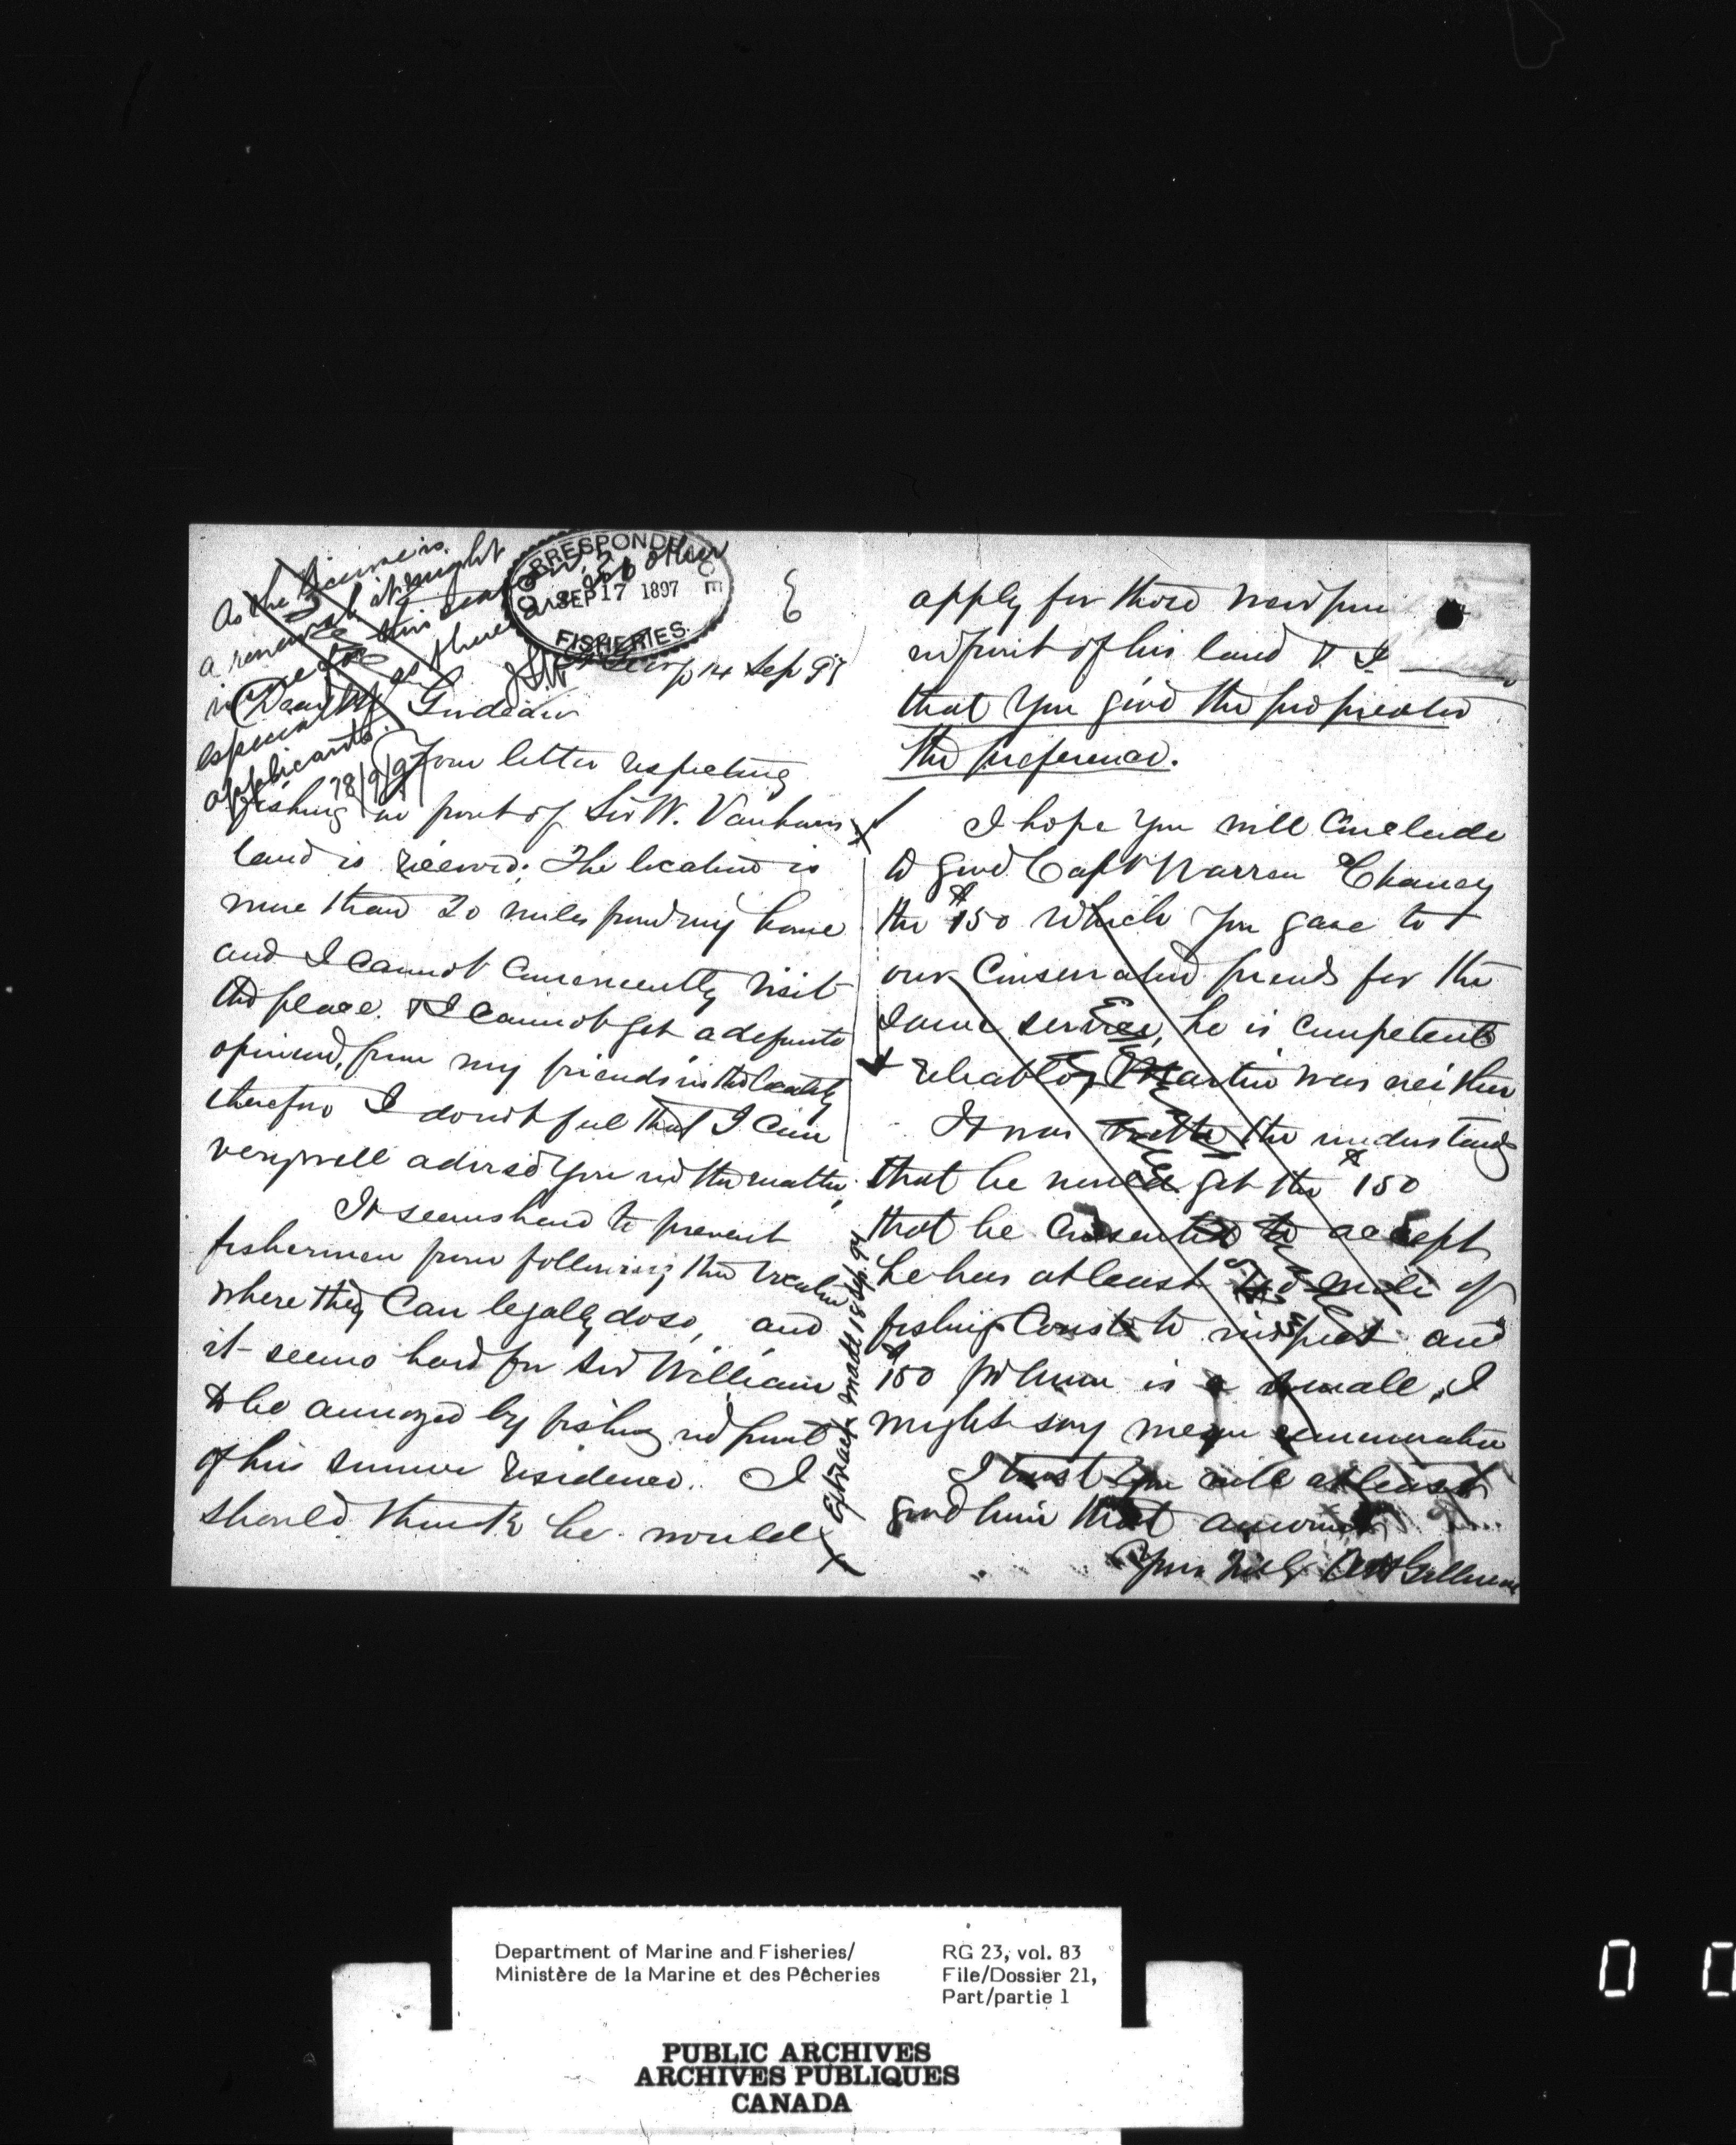 As the license is
a renewal it might
issue for this season,
especially as there are no other
applicants.
18/9/97
CORRESPONDENCE
SEP 17 1897
FISHERIES.
14 Sep 97
Dear Mr Gudeau
Your letter respecting
fishing in front of Sir W. Vanhorns
land is received; The location is
more than 20 miles from my home
and I cannot conveniently visit
the place. & I cannot get a definite
opinion, from my friends in the locality
therefore I doubtful that I can
very well advise you in the matter,
It seems hard to prevent
fishermen from following their vocation
where they can legally do so, and
it seems hard for Sir William
to be annoyed by fishing in front
of his summer residence. I
should think he would
Extract made 18 Sep. 97
apply for those weirs
in front of his land & I
that you give the
the preference.
I hope you will conclude
to give Capt Warren Chaney
the $150 which you gave to
our Conservative friends for the
same service, he is competent
& reliable, Martin was neither
It was the understanding
that he would get the $150
that he consented to accept
he has at least miles of
fishing Coast to inspect and
$150 per annum is a small, I
might say meagre remuneration
I trust you will at least
give him that amount
Yours truly A H Gillmor
Department of Marine and Fisheries/
Ministère de la Marine et des Pêcheries
RG 23, vol. 83
File/Dossier 21,
Part/partie 1
PUBLIC ARCHIVES
ARCHIVES PUBLIQUES
CANADA
0 0